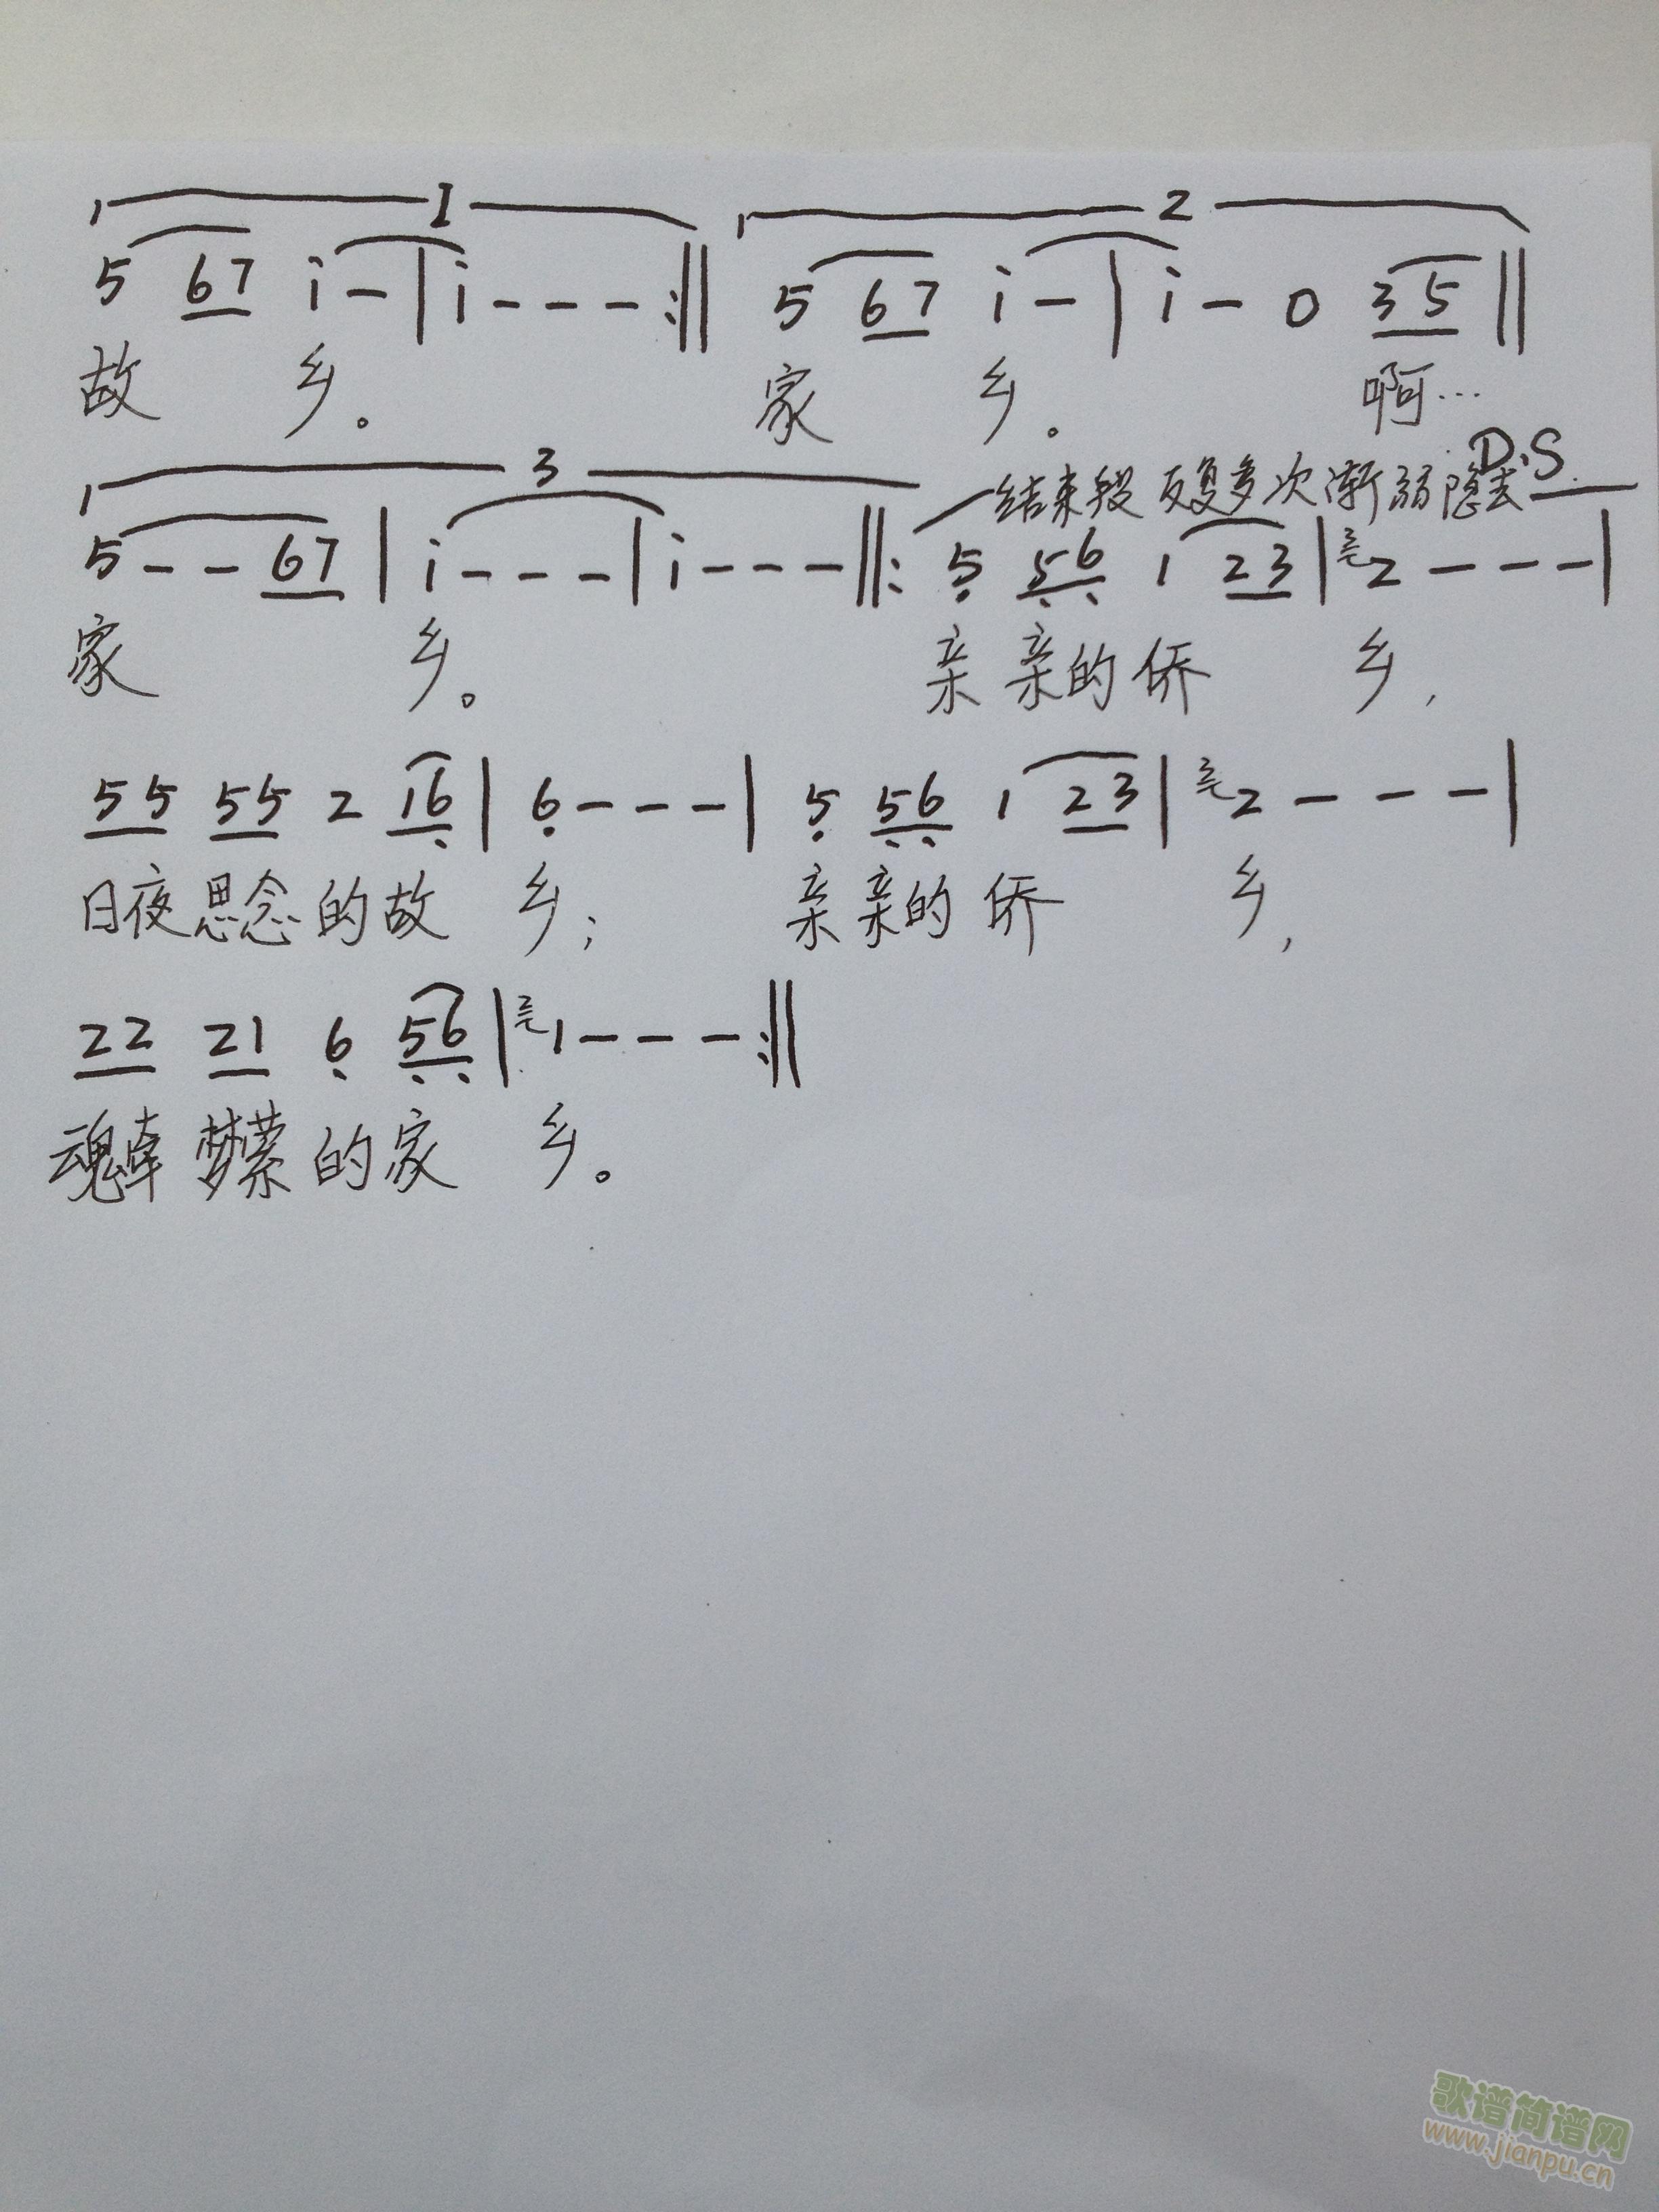 1 2
5 67 i - | i - - - :‖ 5 67 i - | i - 0 35 ‖
故 乡。 家 乡。 啊…
D.S.
3 结束段 反复多次渐弱隐去
5 - - 67 | i - - - | i - - - ‖: 5 56 1 23 | 3 2 - - - |
家 乡。 亲 亲的 侨 乡,
55 55 2 16 | 6 - - - | 5 56 1 23 | 3 2 - - - |
日夜 思念 的 故 乡; 亲 亲的 侨 乡,
22 21 6 56 | 2 1 - - - :‖
魂牵 梦萦 的 家 乡。
歌谱简谱网
www.jianpu.cn